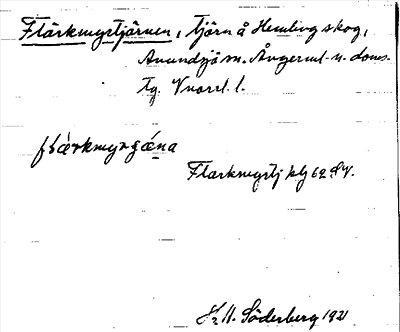 Flärkmyrtjärnen, tjärn å Hemling skog,
Anundsjö sn. Ångerml. n. doms.
Tg. Vnorrl. l.
flǽrkmyrʒǽna
Flarkmyrtj klj 62 SV.
H. Söderberg 1921